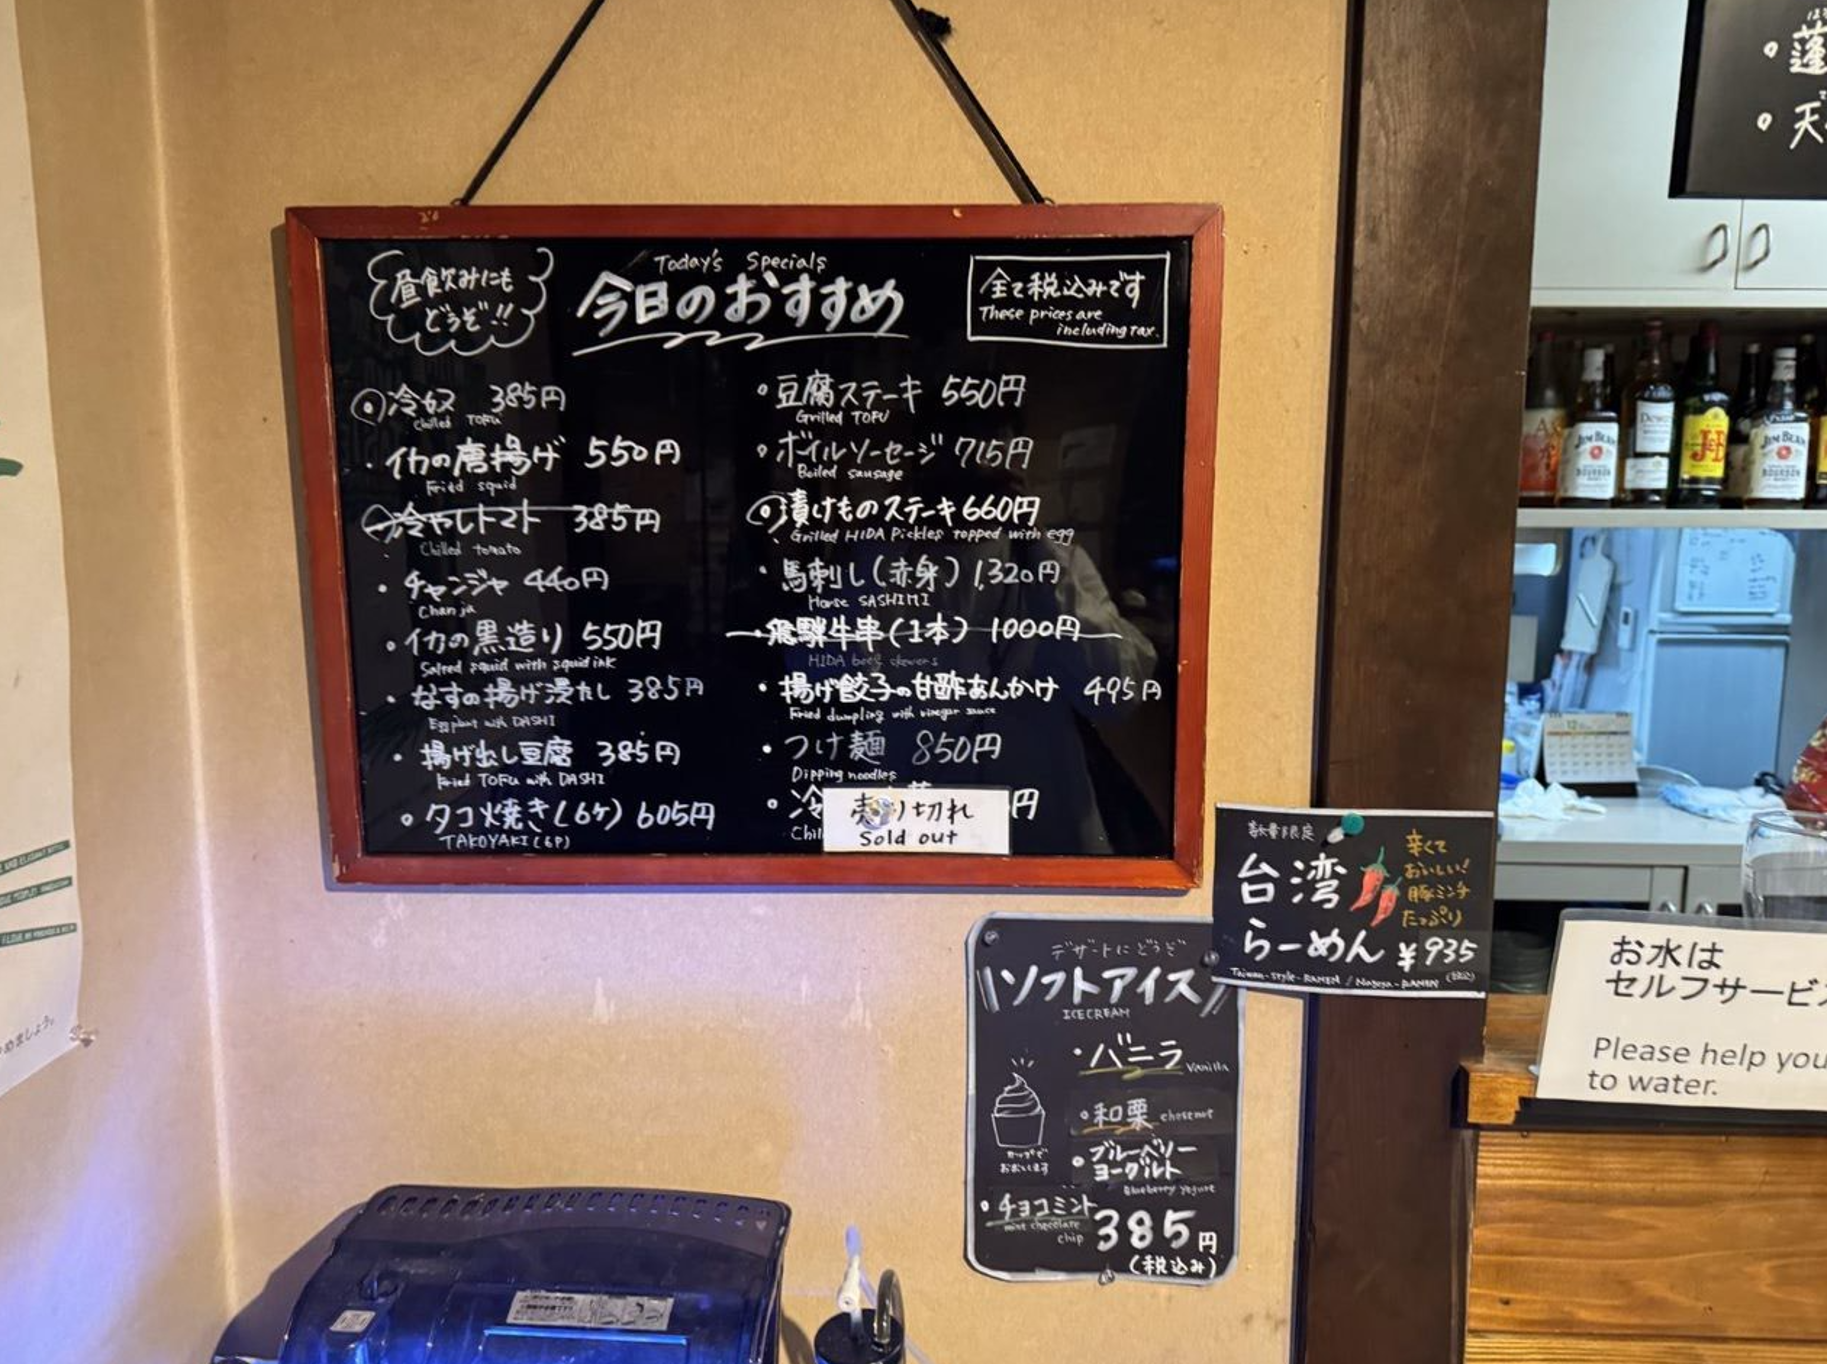 昼飲みにも
どうぞ!!
Today's Specials
今日のおすすめ
全て税込みです
These prices are
including tax.
冷奴 385円
Chilled TOFU
・イカの唐揚げ 550円
Fried squid
冷やしトマト 385円
Chilled tomato
・チャンジャ 440円
Chanja
・イカの黒造り 550円
Salted squid with squid ink
・なすの揚げ浸たし 385円
Eggplant with DASHI
・揚げ出し豆腐 385円
Fried TOFU with DASHI
・タコ焼き(6ケ) 605円
TAKOYAKI(6P)
・豆腐ステーキ 550円
Grilled TOFU
・ボイルソーセージ 715円
Boiled sausage
漬けものステーキ 660円
Grilled HIDA Pickles topped with egg
・馬刺し(赤身) 1,320円
Horse SASHIMI
・飛騨牛串(1本) 1000円
HIDA beef skewers
・揚げ餃子の甘酢あんかけ 495円
Fried dumpling with vinegar sauce
・つけ麺 850円
Dipping noodles
・冷 円
Chil
売り切れ
Sold out
数量限定
台湾
らーめん ¥935
(税込)
Taiwan-style-RAMEN / Nagoya-RAMEN
辛くて
おいしい!
豚ミンチ
たっぷり
デザートにどうぞ
ソフトアイス
ICECREAM
・バニラ Vanilla
・和栗 chestnut
・ブルーベリー
ヨーグルト
Blueberry yogurt
カップで
お出しします
・チョコミント
mint chocolate
chip
385円
(税込み)
・蓬
・天
JIM BEAM
BOURBON
J&B
JIM BEAM
BOURBON
12
お水は
セルフサービス
Please help you
to water.
めましょう。